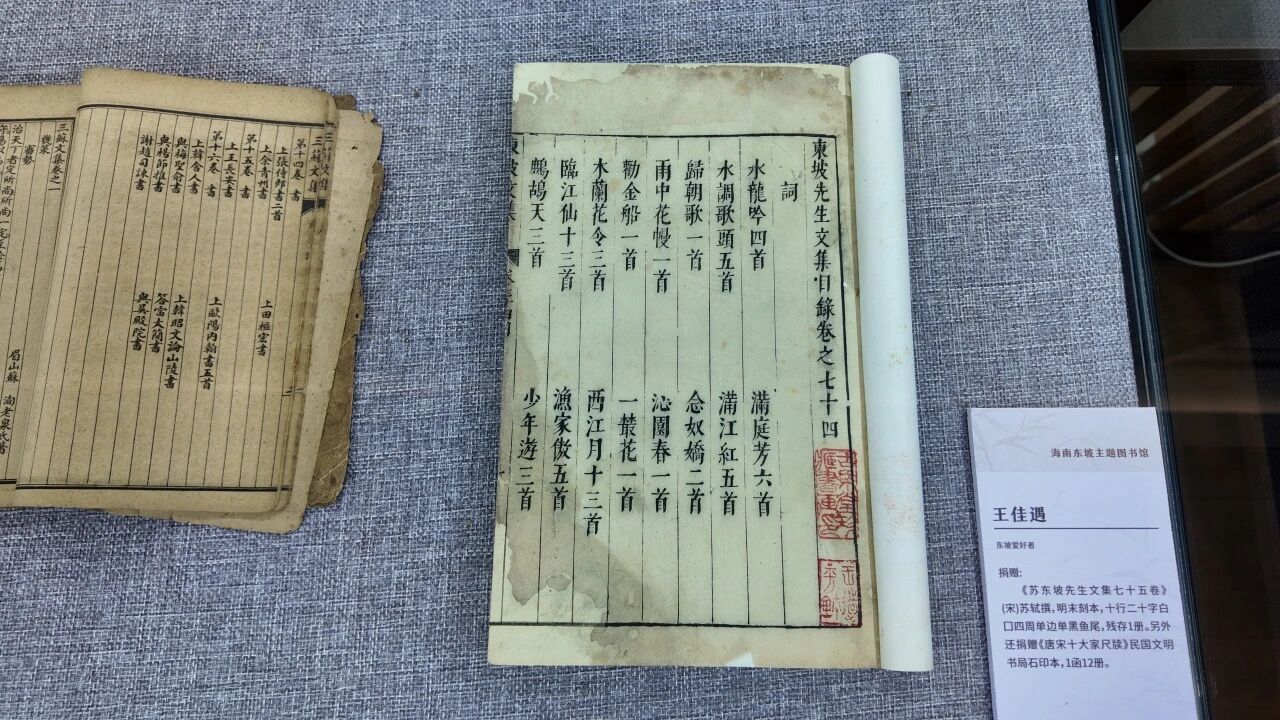 東坡先生文集目錄卷之七十四
詞
水龍吟四首 滿庭芳六首
水調歌頭五首 滿江紅五首
歸朝歌一首 念奴嬌二首
雨中花慢一首 沁園春一首
勸金船一首 一叢花一首
木蘭花令三首 西江月十三首
臨江仙十三首 漁家傲五首
鷓鴣天三首 少年遊三首
三蘇文集
第十四卷 書
上張侍郎書二首 上田樞密書
上余青州書
第十五卷 書
上王長安書 上歐陽內翰書五首
第十六卷 書
上韓舍人書 上韓昭文論山陵書
與梅聖俞書 答雷太簡書
與楊節推書 與吳殿院書
謝趙司諫書
三蘇文集卷之一
眉山蘇 洵老泉氏著
審勢
治天下者定所尚所尚一定至于
海南东坡主题图书馆
王佳遇
东坡爱好者
捐赠:
《苏东坡先生文集七十五卷》
(宋)苏轼撰,明末刻本,十行二十字白
口四周单边单黑鱼尾,残存1册。另外
还捐赠《唐宋十大家尺牍》民国文明
书局石印本,1函12册。